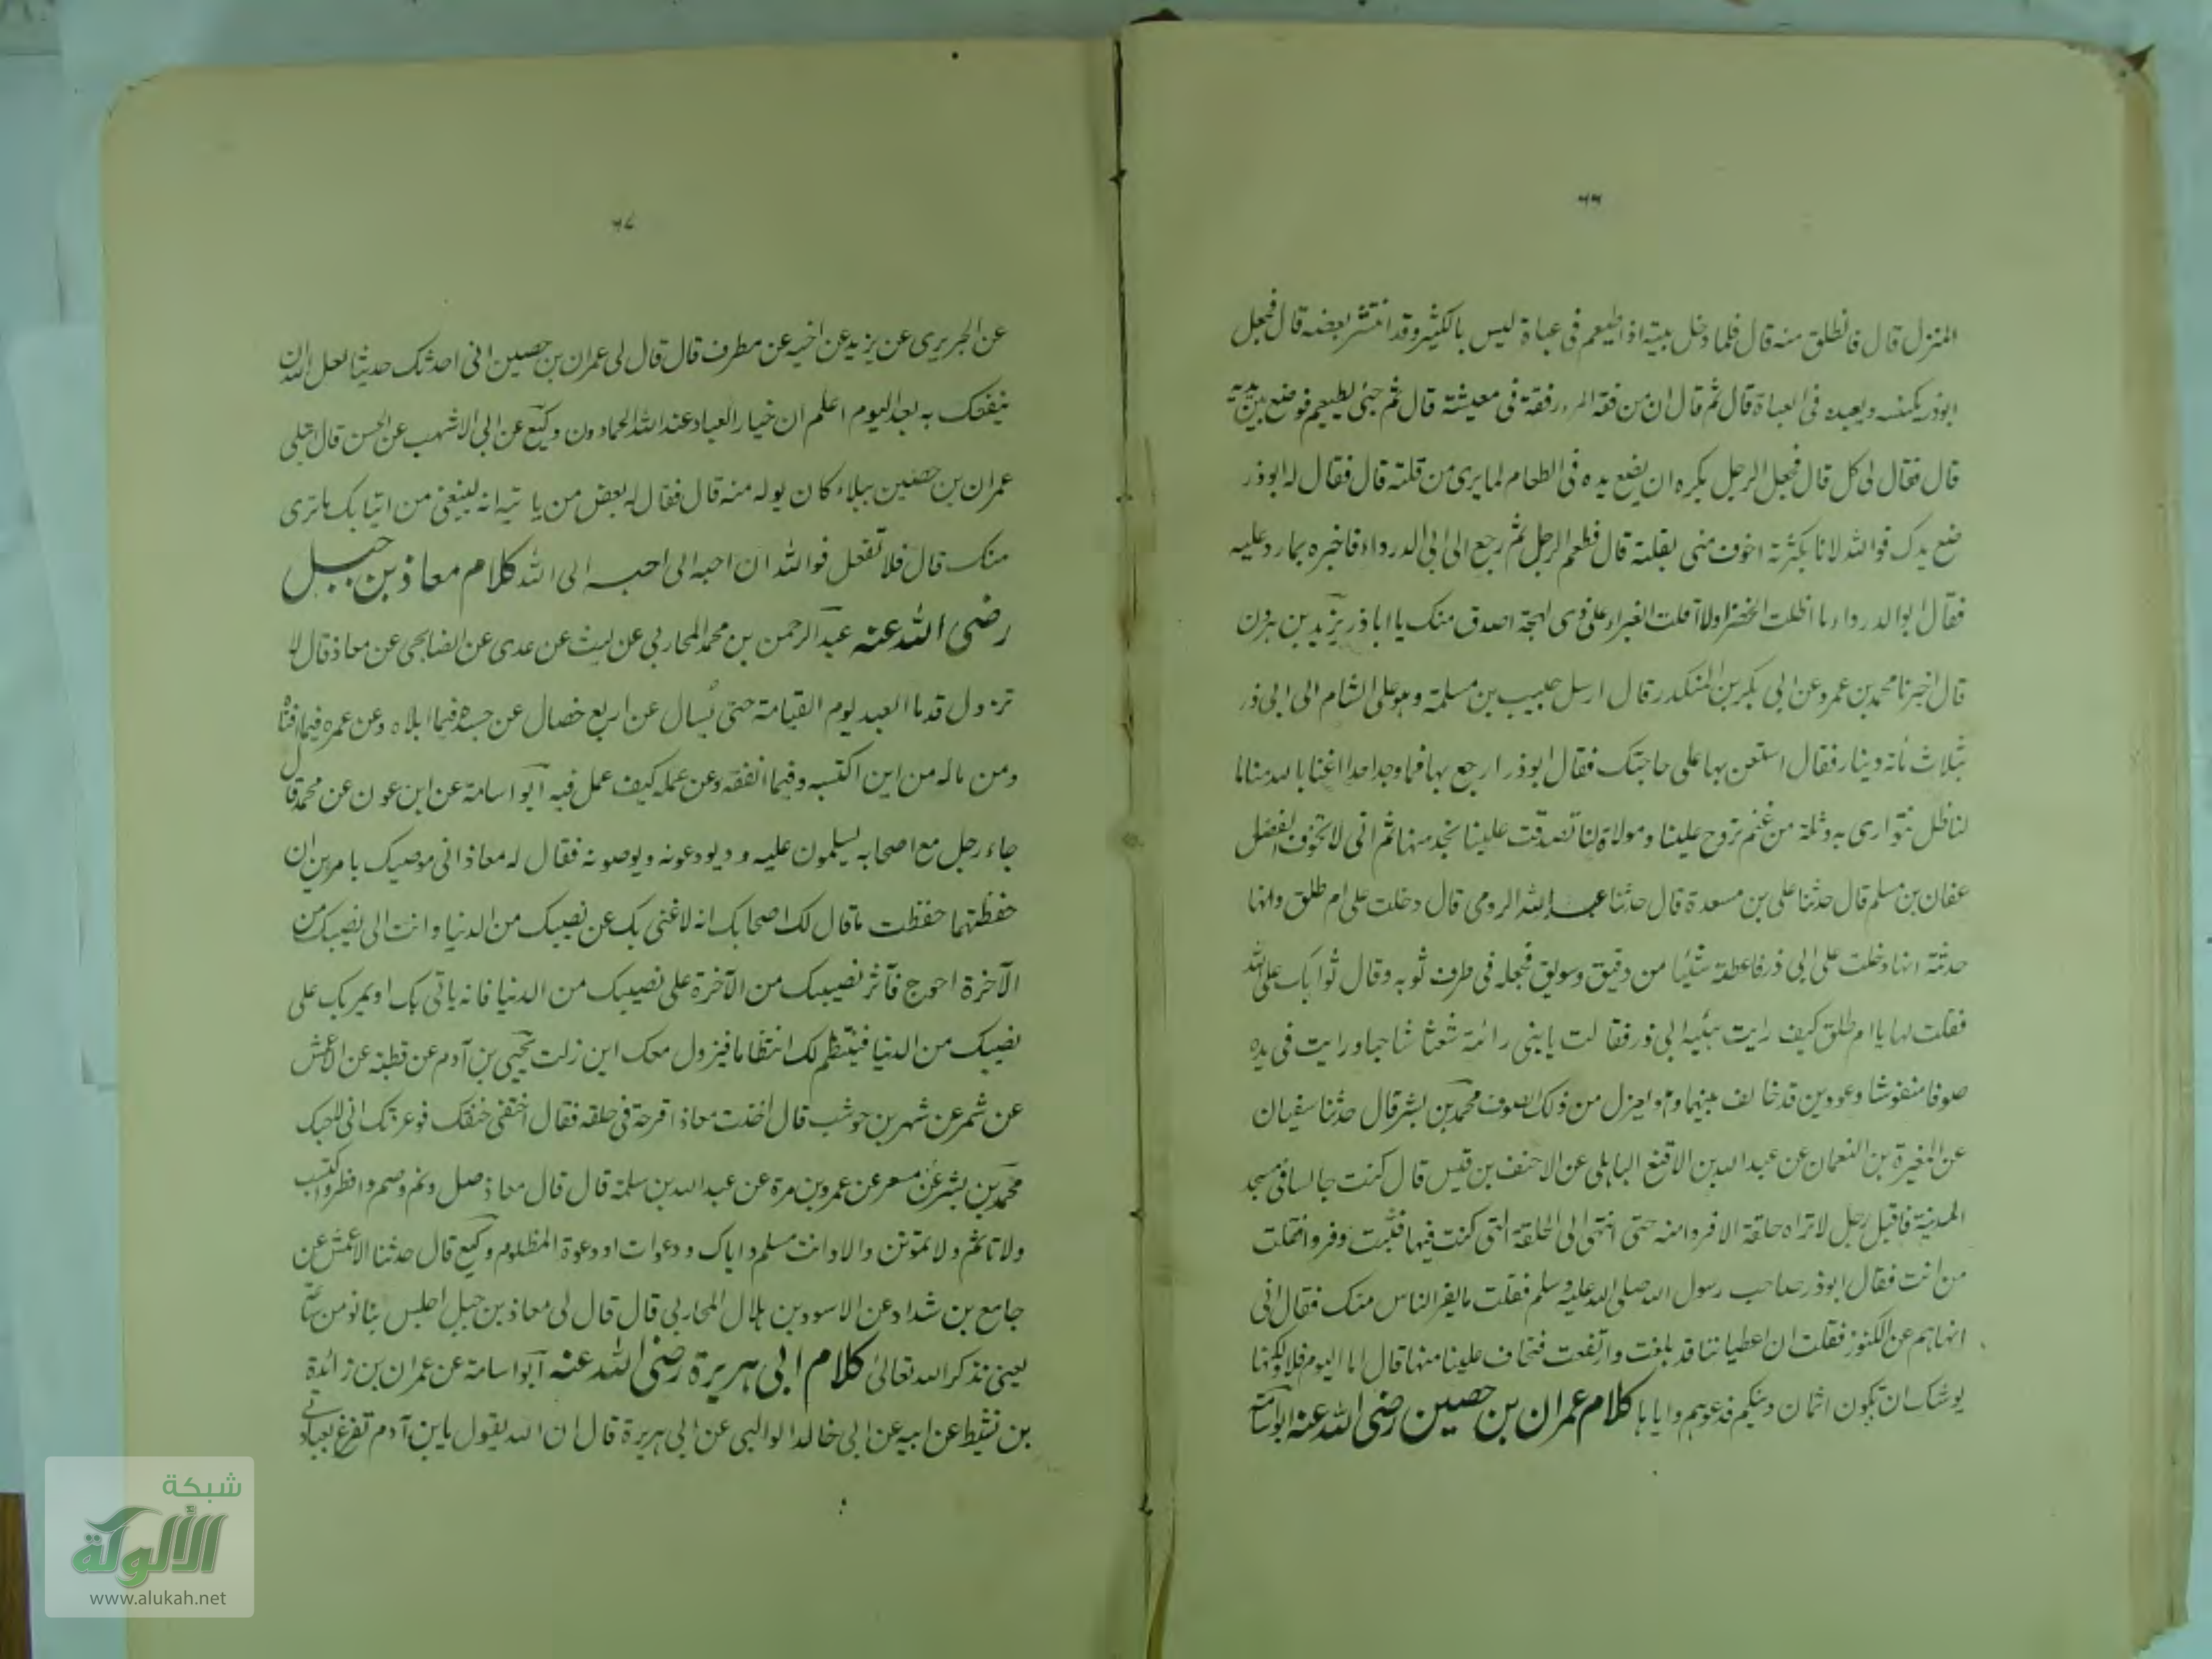 ٦٦
المنزل قال فانطلق منه قال فلما دخل بيته اذا طيعم فى عباة ليس بالكثير وقد انتشر بعضه قال فجعل
ابوذر يكنسه ويعيده فى العباة قال ثم قال ان من فقه المرء رفقه فى معيشة قال ثم جئ بطيعم فوضع بين يديه
قال فقال لى كل قال فجعل الرجل يكره ان يضع يده فى الطعام لما يرى من قلته قال فقال له ابوذر
ضع يدك فوالله لانا بكثرته اخوف منى بقلته قال فطعم الرجل ثم رجع الى ابى الدرداء فاخبره بما رد عليه
فقال ابوالدرداء ما اظلت الخضراء ولا اقلت الغبراء على ذى لهجة اصدق منك يا اباذر يزيد بن هرون
قال اخبرنا محمد بن عمرو عن ابى بكر بن المنكدر قال ارسل حبيب بن مسلمة وهو على الشام الى ابى ذر
بثلاث مائة دينار فقال استعن بها على حاجتك فقال ابوذر ارجع بها فما وجد احدا اغنا بالله منا ما
لنا ظل نتوارى به وثلة من غنم تروح علينا ومولاة لنا تصدقت علينا بخدمتها ثم انى لا تخوف الفضل
عفان بن مسلم قال حدثنا على بن مسعدة قال حدثنا عبدالله الرومى قال دخلت على ام طلق وانها
حدثته انها دخلت على ابى ذر فاعطته شيئا من دقيق وسويق فجعله فى طرف ثوبه وقال ثوابك على الله
فقلت لها يا ام طلق كيف رايت هيئة ابى ذر فقالت يا بنى رائته شعثا شاحبا ورايت فى يده
صوفا منفوشا وعودين قد خالف بينهما وهو يعزل من ذلك الصوف محمد بن بشر قال حدثنا سفيان
عن المغيرة بن النعمان عن عبدالله بن الاقنع الباهلى عن الاحنف بن قيس قال كنت جالسا فى مسجد
المدينة فاقبل رجل لا تراه حلقة الا فروا منه حتى انتهى الى الحلقة التى كنت فيها فثبت وفروا فقلت
من انت فقال ابوذر صاحب رسول الله صلى الله عليه وسلم فقلت ما يفر الناس منك فقال انى
انهاهم عن الكنوز فقلت ان اعطياتنا قد بلغت وارتفعت فتخاف علينا منها قال اما اليوم فلا ولكنها
يوشك ان تكون اثمان دينكم فدعوهم واياها كلام عمران بن حصين رضى الله عنه ابواسامة
٦٧
عن الجريرى عن يزيد عن اخيه عن مطرف قال قال لى عمران بن حصين انى احدثك حديثا لعل الله ان
ينفعك به بعد اليوم اعلم ان خيار العباد عند الله الحمادون وكيع عن ابى الاشهب عن الحسن قال ابتلى
عمران بن حصين ببلاء كان يوله منه قال فقال له بعض من ياتيه انه ليمنعنى من اتيانك ما ترى
منك قال فلا تفعل فوالله ان احبه الى احبه الى الله كلام معاذ بن جبل
رضى الله عنه عبد الرحمن بن محمد المحاربى عن ليث عن عدى عن الصنابحى عن معاذ قال لا
تزول قدما العبد يوم القيامة حتى يسال عن اربع خصال عن جسده فيما ابلاه وعن عمره فيما افناه
ومن ماله من اين اكتسبه وفيما انفقه وعن عمله كيف عمل فيه ابو اسامة عن ابن عون عن محمد قال
جاء رجل مع اصحابه يسلمون عليه ويودعونه ويوصونه فقال له معاذ انى موصيك بامرين ان
حفظتهما حفظت ما قال لك اصحابك انه لا غنى بك عن نصيبك من الدنيا وانت الى نصيبك من
الآخرة احوج فآثر نصيبك من الآخرة على نصيبك من الدنيا فانه ياتى بك او يمر بك على
نصيبك من الدنيا فينتظم لك انتظاما فيزول معك اين زلت يحيى بن آدم عن قطبه عن الاعمش
عن شمر عن شهر بن حوشب قال اخذت معاذا قرحة فى حلقه فقال اخنقنى خنقك فوعزتك انى لاحبك
محمد بن بشر عن مسعر عن عمرو بن مرة عن عبدالله بن سلمة قال قال معاذ صل ونم وصم وافطر واكتسب
ولا تاثم ولا تموتن والا وانت مسلم واياك ودعوات او دعوة المظلوم وكيع قال حدثنا الاعمش عن
جامع بن شداد عن الاسود بن هلال المحاربى قال قال لى معاذ بن جبل اجلس بنا نومن ساعة
يعنى نذكر الله تعالى كلام ابى هريرة رضى الله عنه ابو اسامة عن عمران بن زائدة
بن نشيط عن ابيه عن ابى خالد الوالبى عن ابى هريرة قال ان الله يقول يا ابن آدم تفرغ لعبادتى
شبكة
الألوكة
www.alukah.net